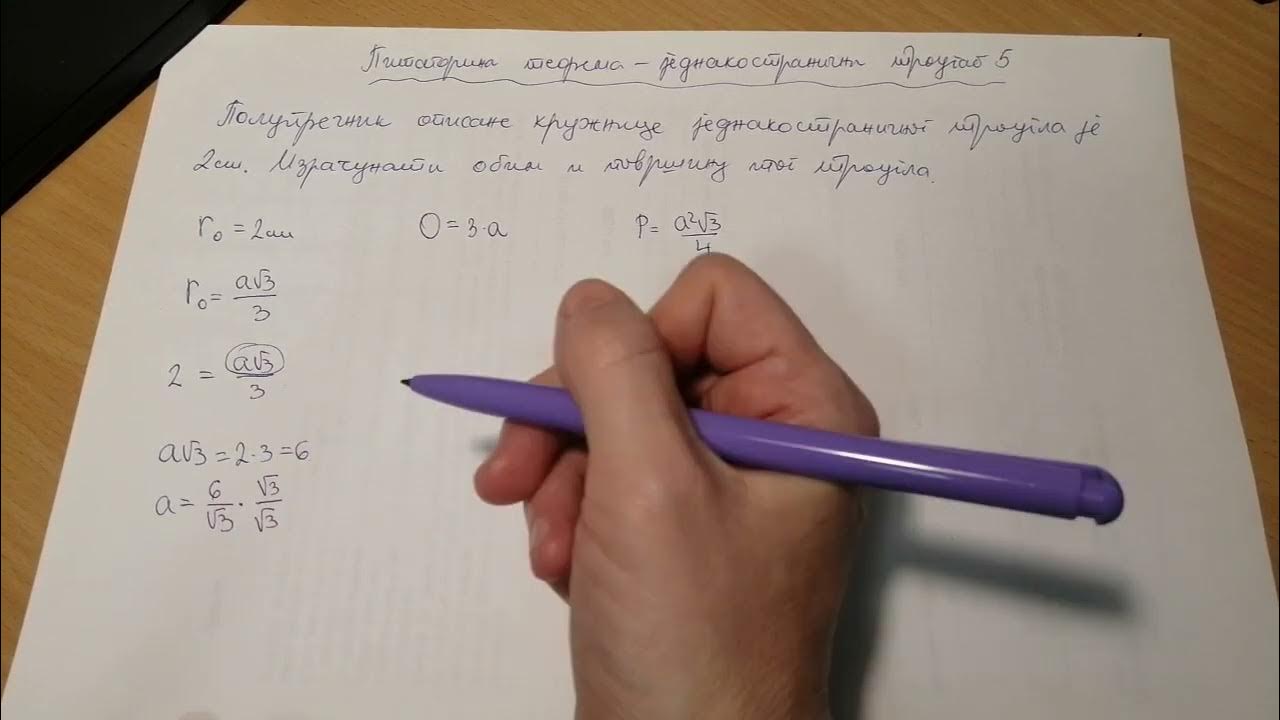 Питагорина теорема – једнакостранични троугао 5
Полупречник описане кружнице једнакостраничног троугла је
2cm. Израчунати обим и површину тог троугла.
r₀ = 2cm O = 3·a P = a²√3/4
r₀ = a√3/3
2 = a√3/3
a√3 = 2·3 = 6
a = 6/√3 · √3/√3